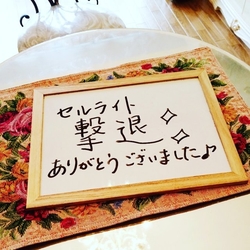 セルライト
撃退
ありがとうございました♪